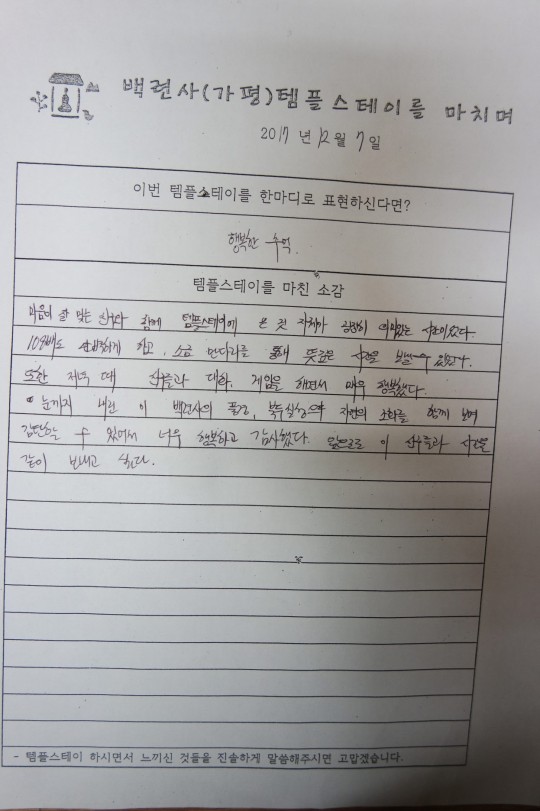 백련사(가평)템플스테이를 마치며
2017 년 12월 7일
이번 템플스테이를 한마디로 표현하신다면?
행복한 추억.
템플스테이를 마친 소감
마음이 잘 맞는 친구와 함께 템플스테이에 온 것 자체가 굉장히 의미있는 시간이었다.
108배도 하고, 소금 만다라를 통해 뜻깊은 시간을 보낼 수 있었다.
또한 저녁 때 친구들과 대화, 게임을 하면서 매우 행복했다.
눈까지 내린 이 백련사의 풍경, 자연의 조화를 함께 보며
감탄할 수 있어서 너무 행복하고 감사했다. 앞으로도 이 친구들과 시간을
같이 보내고 싶다.
- 템플스테이 하시면서 느끼신 것들을 진솔하게 말씀해주시면 고맙겠습니다.